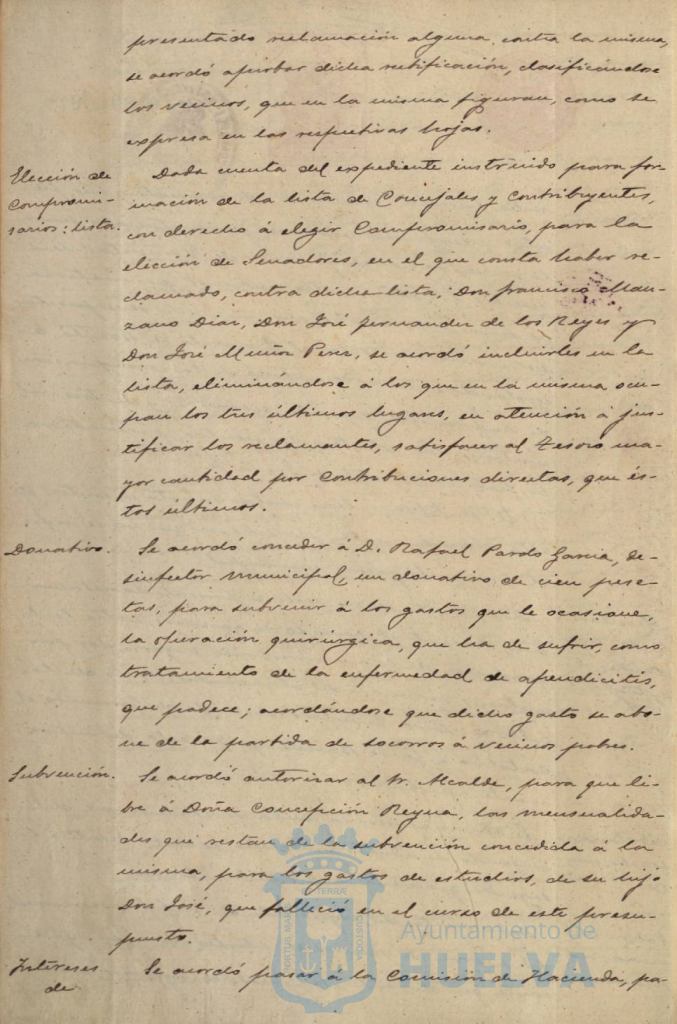 presentado reclamación alguna contra la misma,
se acordó aprobar dicha rectificación, clasificándose
los vecinos, que en la misma figuran, como se
expresa en las respectivas hojas.
Elección de
Compromi-
sarios: lista.
Dada cuenta del expediente instruido para for-
mación de la lista de Concejales y contribuyentes,
con derecho á elegir Compromisario, para la
elección de Senadores, en el que consta haber re-
clamado, contra dicha lista, Don Francisco Man-
zano Diaz, Don José Fernandez de los Reyes y
Don José Muñoz Perez, se acordó incluirles en la
lista, eliminándose á los que en la misma ocu-
pan los tres últimos lugares, en atención á jus-
tificar los reclamantes, satisfacer al Tesoro ma-
yor cantidad por contribuciones directas, que és-
tos últimos.
Donativo.
Se acordó conceder á D. Rafael Pardo Garcia, de-
sinfector municipal, un donativo de cien pese-
tas, para subvenir á los gastos que le ocasione,
la operación quirúrgica, que ha de sufrir, como
tratamiento de la enfermedad de apendicitis,
que padece; acordándose que dicho gasto se abo-
ne de la partida de socorros á vecinos pobres.
Subvención.
Se acordó autorizar al Sr. Alcalde, para que li-
bre á Doña Concepción Reyna, las mensualida-
des que restan de la subvención concedida á la
misma, para los gastos de estudios, de su hijo
Don José, que falleció en el curso de este presu-
puesto.
Intereses
de
Se acordó pasar á la Comisión de Hacienda, pa-
Ayuntamiento de
HUELVA